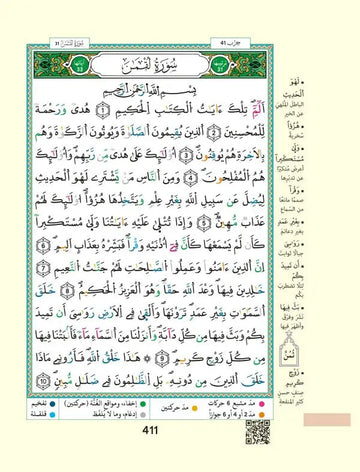 سورة لقمن 31
حزب 41
ترتيبها 31
سُورَةُ لُقْمَٰن
آياتها 33
بِسْمِ اللَّهِ الرَّحْمَٰنِ الرَّحِيمِ
أَلَٓمِّٓ تِلْكَ ءَايَٰتُ الْكِتَٰبِ الْحَكِيمِ (1) هُدىً وَرَحْمَةً
لِّلْمُحْسِنِينَ (2) الذِينَ يُقِيمُونَ الصَّلَوٰةَ وَيُوتُونَ الزَّكَوٰةَ وَهُم
بِالَاخِرَةِ هُمْ يُوقِنُونَ (3) أُوْلَٰٓئِكَ عَلَىٰ هُدىً مِّن رَّبِّهِمْ وَأُوْلَٰٓئِكَ
هُمُ الْمُفْلِحُونَ (4) وَمِنَ النَّاسِ مَنْ يَّشْتَرِے لَهْوَ الْحَدِيثِ
لِيُضِلَّ عَن سَبِيلِ اللَّهِ بِغَيْرِ عِلْمٍ وَيَتَّخِذُهَا هُزُؤاً اُوْلَٰٓئِكَ لَهُمْ
عَذَابٌ مُّهِينٌ (5) وَإِذَا تُتْلَىٰ عَلَيْهِ ءَايَٰتُنَا وَلَّىٰ مُسْتَكْبِراً
كَأَن لَّمْ يَسْمَعْهَا كَأَنَّ فِےٓ أُذْنَيْهِ وَقْراً فَبَشِّرْهُ بِعَذَابٍ اَلِيمٍ (6)
إِنَّ الذِينَ ءَامَنُواْ وَعَمِلُواْ الصَّٰلِحَٰتِ لَهُمْ جَنَّٰتُ النَّعِيمِ (7)
خَٰلِدِينَ فِيهَا وَعْدَ اللَّهِ حَقّاً وَهُوَ الْعَزِيزُ الْحَكِيمُ (8) خَلَقَ
السَّمَٰوَٰتِ بِغَيْرِ عَمَدٍ تَرَوْنَهَا وَأَلْقَىٰ فِے الَارْضِ رَوَٰسِيَ أَن تَمِيدَ
بِكُمْ وَبَثَّ فِيهَا مِن كُلِّ دَآبَّةٍ وَأَنزَلْنَا مِنَ السَّمَآءِ مَآءً فَأَنۢبَتْنَا فِيهَا
مِن كُلِّ زَوْجٍ كَرِيمٍ (9) هَٰذَا خَلْقُ اللَّهِ فَأَرُونِے مَاذَا
خَلَقَ الذِينَ مِن دُونِهِۦ بَلِ الظَّٰلِمُونَ فِے ضَلَٰلٍ مُّبِينٍ (10)
لَهْوَ
الْحَدِيثِ
الباطل الملهي
عن الخير
هُزُؤاً
سخرية
وَلَّىٰ
مُسْتَكْبِراً
أعرض متكبرا
عن تدبرها
وَقْراً
صمما مانعا
من السماع
بِغَيْرِ عَمَدٍ
بغير دعائم
رَوَٰسِيَ
جبالا ثوابت
أَن تَمِيدَ
بِكُمْ
بَثَّ فِيهَا
نشر وفرق
وأظهر فيها
ثمن
زَوْجٍ
كَرِيمٍ
صنف حسن
كثير المنفعة
مد مشبع 6 حركات
مد 2 أو 4 أو 6 جوازا
مد حركتين
إخفاء، ومواقع الغنة (حركتين)
إدغام، وما لا يلفظ
تفخيم
قلقلة
411